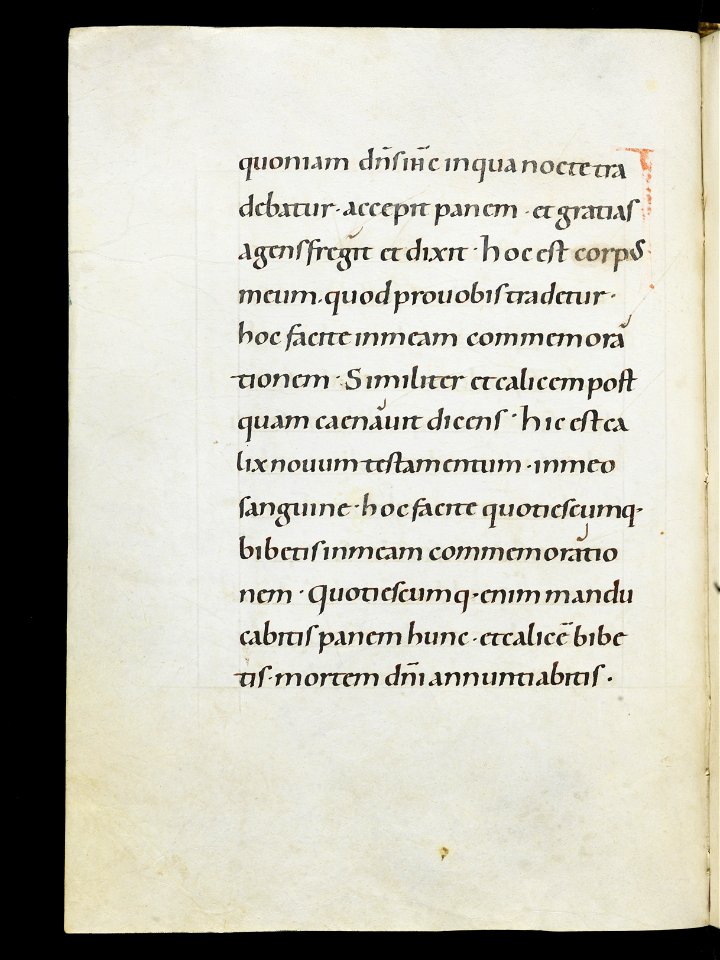 quoniam dn̄s ih̄c in qua nocte tra
debatur · accepit panem · et gratias
agens fregit et dixit · hoc est corpus
meum · quod pro uobis tradetur ·
hoc facite in meam commemora
tionem · Similiter et calicem post
quam caenauit dicens · hic est ca
lix nouum testamentum · in meo
sanguine · hoc facite quotiescumq·
bibetis in meam commemoratio
nem · Quotiescumq· enim mandu
cabitis panem hunc · et calicē bibe
tis · mortem dn̄i annuntiabitis ·